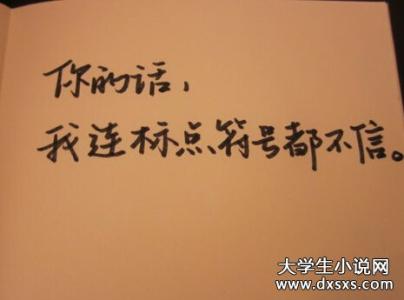 你的话，
我连标点符号都不信。
大学生小说网
www.dxsxs.com